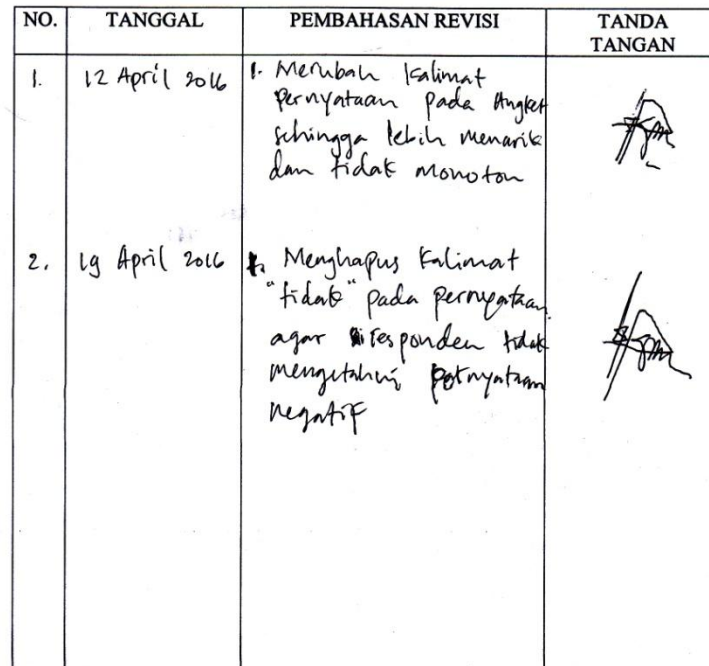 NO. TANGGAL PEMBAHASAN REVISI TANDA TANGAN
1. 12 April 2016 1. Merubah Kalimat
pernyataan pada Angket
sehingga lebih menarik
dan tidak monoton
2. 19 April 2016 1. Menghapus kalimat
"tidak" pada pernyataan
agar responden tidak
mengetahui pernyataan
negatif